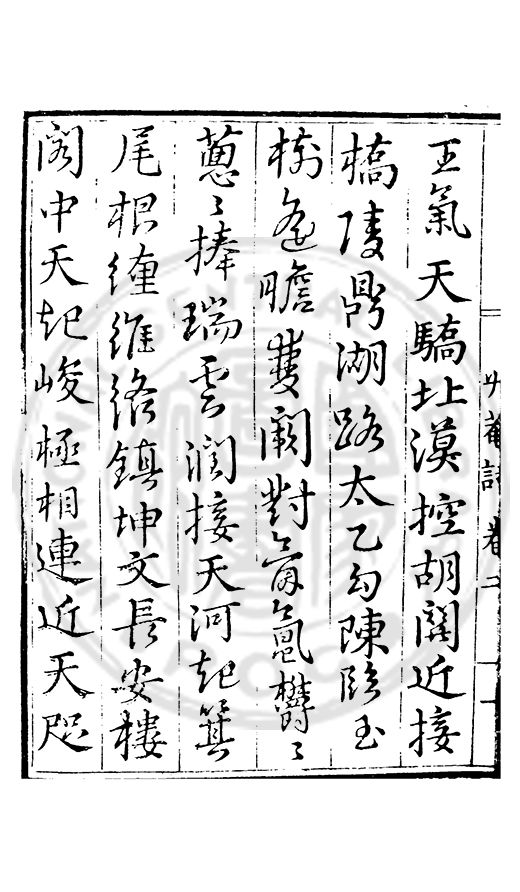 王氣天驕北漠控胡關近接
橋陵鼎湖路太乙勾陳臨玉
樹遙瞻雙闕對氤氳鬱〻
蔥〻捧瑞雲潤接天河起箕
尾根纏維絡鎮坤文長安樓
閣中天起峻極相連近天咫
卷二